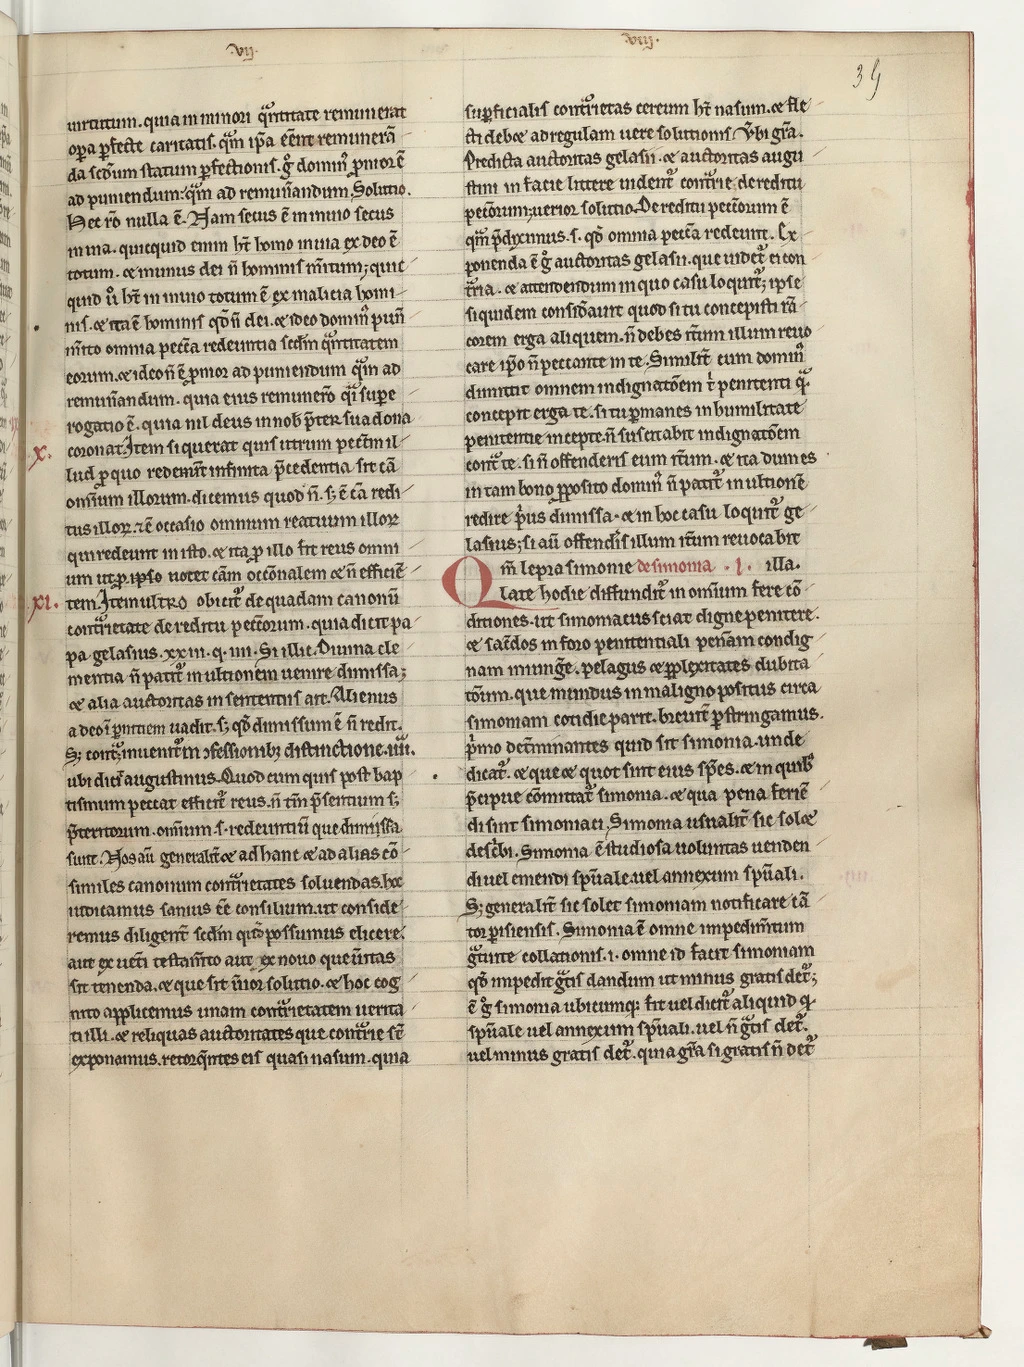 vij.
viij.
35
uirtutum. quia in minori q̄ntitate remunerat
oꝑa ꝑfecte caritatis. q̄m ip̄a eēnt remunerā
da scd̄um statum ꝑfectionis. gͦ domin᷒ pͥnior ē
ad puniendum. q̄m ad remun̄andum. Solutio.
Hec rō nulla ē. Nam secus ē in uino secus
in ina. quicquid enim ht̄ homo in ina ex deo ē
totum. ⁊ munus dei n̄ hominis m̄itum; quic
quid ū ht̄ in uino totum ē ex malicia homi
nis. ⁊ ita ē hominis qd̄ n̄ dei. ⁊ ideo domin᷒ pun̄
m̄ito omnia pecc̄a redeuntia scd̄m q̄ntitatem
eorum. ⁊ ideo n̄ ē pͥnior ad puniendum q̄m ad
remun̄andum. quia eius remunerō q̄si supe
rogatio ē. quia nil deus in nob̄ p̄ter sua dona
x.
coronat. Item si querat quis utrum pecc̄m il
lud ꝑ quo redeunt infinita p̄cedentia sit cā
omnium illorum. dicemus quod n̄. s; ē cā redi
tus illoꝝ. ⁊ ē occasio omnium reatuum illoꝝ
qui redeunt in isto. ⁊ ita ꝑ illo fit reus omni
um ut ꝑ ipso notet cām occōnalem ⁊ n̄ efficiē
xi.
tem. Item ultro obicit᷑ de quadam canonū
cont̄rietate de reditu peccorum. quia dicit pa
pa gelasius. xxiii. q. iiii. Si illic. Diuina cle
mentia n̄ patit᷑ in ultionem uenire dimissa;
⁊ alia auctoritas in sententiis ait. Alienus
a deo ī ꝑnitiem uadit. s; qd̄ dimissum ē n̄ redit.
S; cont᷑; inuenit᷑ in ɔfessionibꝫ distinctione. iiii.
ubi dicit augustinus. Quod cum quis post bap
tismum peccat efficit᷑ reus. n̄ tm̄ p̄sentium s;
p̄teritorum. omnium .s. redeuntiū que dimissa
sunt. Nos aū generalit᷑ ⁊ ad hanc ⁊ ad alias cō
similes canonum cont̄rietates soluendas. hoc
iudicamus sanius eē consilium. ut conside
remus diligent᷑ scd̄m qd̄ possumus elicere.
aut ex uet̄i testam̄to aut ex nouo que ūitas
sit tenenda. ⁊ que sit ūior solutio. ⁊ hoc cog
nito applicemus unam cont̄rietatem uerita
ti illi. ⁊ reliquas auctoritates que cont̄rie sē
exponamus. retorq̄ntes eis quasi nasum. quia
suꝑficialis cont̄rietas cereum ht̄ nasum. ⁊ fle
cti debet ad regulam uere solutionis. Ubi grā.
Predicta auctoritas gelasii. ⁊ auctoritas augu
stini in facie littere uident᷑ cont̄rie. de reditu
peccorum; uerior solutio. De reditu peccorum ē
qm̄ p̄diximus .s. qd̄ omnia pecc̄a redeunt. Ex
ponenda ē gͦ auctoritas gelasii. que uidet᷑ ei con
t̄ria. ⁊ attendendum in quo casu loquit᷑; ipse
siquidem consid̄auit quod si tu concepisti rā
corem erga aliquem. n̄ debes it̄um illum reuo
care ip̄o n̄ peccante in te. Similit᷑ cum domin᷒
dimittit omnem indignatōem t̄ penitenti q̄
concepit erga te. si tu ꝑmanes in humilitate
penitentie incepte. n̄ suscitabit indignatōem
cont᷑ te. si n̄ offenderis eum it̄um. ⁊ ita dum es
in tam bono ꝓposito domin᷒ n̄ patit᷑ in ultionē
redire p̄us dimissa. ⁊ in hoc casu loquit᷑ ge
lasius; si aū offendis illum it̄um reuocabit
illa.
Qm̄ lepra simonie de simonia .i.
late hodie diffundit᷑ in omnium fere cō
ditiones. ut simoniacus sciat digne penitere.
⁊ sac̄dos in foro penitentiali penam condig
nam iniunḡe. pelagus ⁊ ꝑplexitates dubita
tōum. que mundus in maligno positus circa
simoniam cotidie parit. breuit᷑ ꝑstringamus.
p̄mo det̄minantes quid sit simonia. unde
dicat᷑. ⁊ que ⁊ quot sint eius sp̄es. ⁊ in quib᷒
p̄cipue cōmittat᷑ simonia. ⁊ qua pena feriē
di sint simoniaci. Simonia usualit᷑ sic solet
desc̄bi. Simonia ē studiosa uoluntas uenden
di uel emendi sp̄uale. uel annexum sp̄uali.
S; generalit᷑ sic solet simoniam notificare cā
tor ꝑisiensis. Simonia ē omne impedim̄tum
gͣtuite collationis .i. omne id facit simoniam
qd̄ impedit gͣtis dandum ut minus gratis det᷑;
ē gͦ simonia ubicumq; fit uel dicit᷑ aliquid q̄
sp̄uale uel annexum sp̄uali. uel n̄ gͣtis det᷑.
uel minus gratis det᷑. quia grā si gratis n̄ det᷑